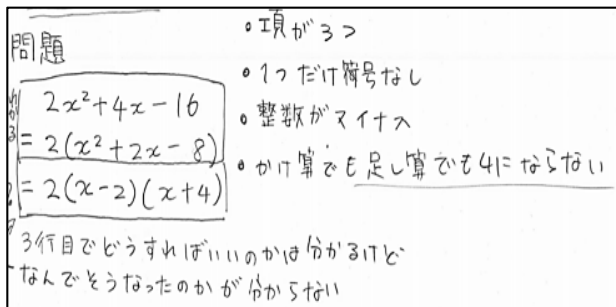 問題
2x²+4x-16
=2(x²+2x-8)
=2(x-2)(x+4)
3行目でどうすればいいのかは分かるけど
なんでそうなったのかが分からない
・項が3つ
・1つだけ符号なし
・整数がマイナス
・かけ算でも足し算でも4にならない